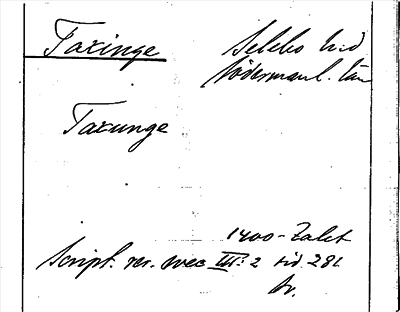 Taxinge Selebo hd
Södermanl. län
Taxunge
1400-talet
Script. rer. svec III:2 sid 281
Av.